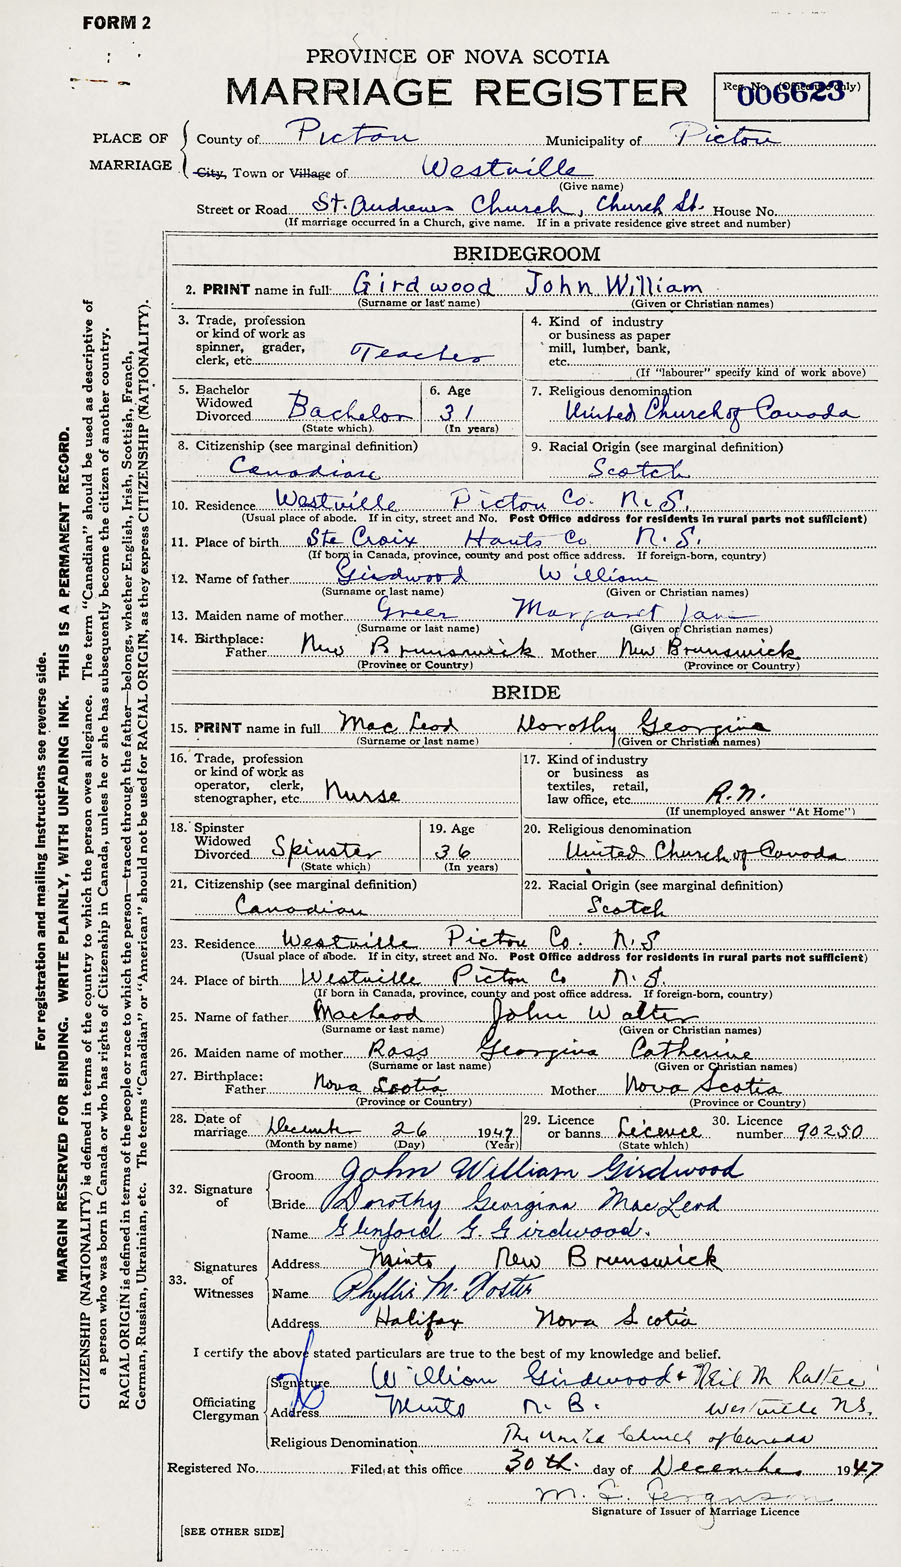 FORM 2
PROVINCE OF NOVA SCOTIA
MARRIAGE REGISTER
Reg. No. (Office use only)
006623
PLACE OF MARRIAGE
County of Pictou Municipality of Pictou
City, Town or Village of Westville
(Give name)
Street or Road St. Andrews Church, Church St. House No.
(If marriage occurred in a Church, give name. If in a private residence give street and number)
BRIDEGROOM
2. PRINT name in full Girdwood John William
(Surname or last name) (Given or Christian names)
3. Trade, profession or kind of work as spinner, grader, clerk, etc. Teacher
4. Kind of industry or business as paper mill, lumber, bank, etc.
(If "labourer" specify kind of work above)
5. Bachelor Widowed Divorced Bachelor
(State which)
6. Age 31
(In years)
7. Religious denomination
United Church of Canada
8. Citizenship (see marginal definition)
Canadian
9. Racial Origin (see marginal definition)
Scotch
10. Residence Westville Pictou Co. N.S.
(Usual place of abode. If in city, street and No. Post Office address for residents in rural parts not sufficient)
11. Place of birth Ste Croix Hants Co N.S.
(If born in Canada, province, county and post office address. If foreign-born, country)
12. Name of father Girdwood William
(Surname or last name) (Given or Christian names)
13. Maiden name of mother Greer Margaret Jane
(Surname or last name) (Given or Christian names)
14. Birthplace: Father New Brunswick Mother New Brunswick
(Province or Country) (Province or Country)
BRIDE
15. PRINT name in full MacLeod Dorothy Georgina
(Surname or last name) (Given or Christian names)
16. Trade, profession or kind of work as operator, clerk, stenographer, etc. Nurse
17. Kind of industry or business as textiles, retail, law office, etc. R.N.
(If unemployed answer "At Home")
18. Spinster Widowed Divorced Spinster
(State which)
19. Age 36
(In years)
20. Religious denomination
United Church of Canada
21. Citizenship (see marginal definition)
Canadian
22. Racial Origin (see marginal definition)
Scotch
23. Residence Westville Pictou Co. N.S
(Usual place of abode. If in city, street and No. Post Office address for residents in rural parts not sufficient)
24. Place of birth Westville Pictou Co N.S.
(If born in Canada, province, county and post office address. If foreign-born, country)
25. Name of father MacLeod John Walter
(Surname or last name) (Given or Christian names)
26. Maiden name of mother Ross Georgina Catherine
(Surname or last name) (Given or Christian names)
27. Birthplace: Father Nova Scotia Mother Nova Scotia
(Province or Country) (Province or Country)
28. Date of marriage December 26 1947
(Month by name) (Day) (Year)
29. Licence or banns Licence
(State which)
30. Licence number 90250
32. Signature of
Groom John William Girdwood
Bride Dorothy Georgina MacLeod
33. Signatures of Witnesses
Name Glenford G. Girdwood.
Address Minto New Brunswick
Name Phyllis M. Foster
Address Halifax Nova Scotia
I certify the above stated particulars are true to the best of my knowledge and belief.
Officiating Clergyman
Signature William Girdwood & Neil M
Address Minto N.B. Westville N.S.
Religious Denomination The United Church of Canada
Registered No. Filed at this office 30th. day of December 1947
M. F. Ferguson
Signature of Issuer of Marriage Licence
[SEE OTHER SIDE]
For registration and mailing instructions see reverse side.
MARGIN RESERVED FOR BINDING. WRITE PLAINLY, WITH UNFADING INK. THIS IS A PERMANENT RECORD.
CITIZENSHIP (NATIONALITY) is defined in terms of the country to which the person owes allegiance. The term "Canadian" should be used as descriptive of
a person who was born in Canada or who has rights of Citizenship in Canada, unless he or she has subsequently become the citizen of another country.
RACIAL ORIGIN is defined in terms of the people or race to which the person—traced through the father—belongs, whether English, Irish, Scottish, French,
German, Russian, Ukrainian, etc. The terms "Canadian" or "American" should not be used for RACIAL ORIGIN, as they express CITIZENSHIP (NATIONALITY).